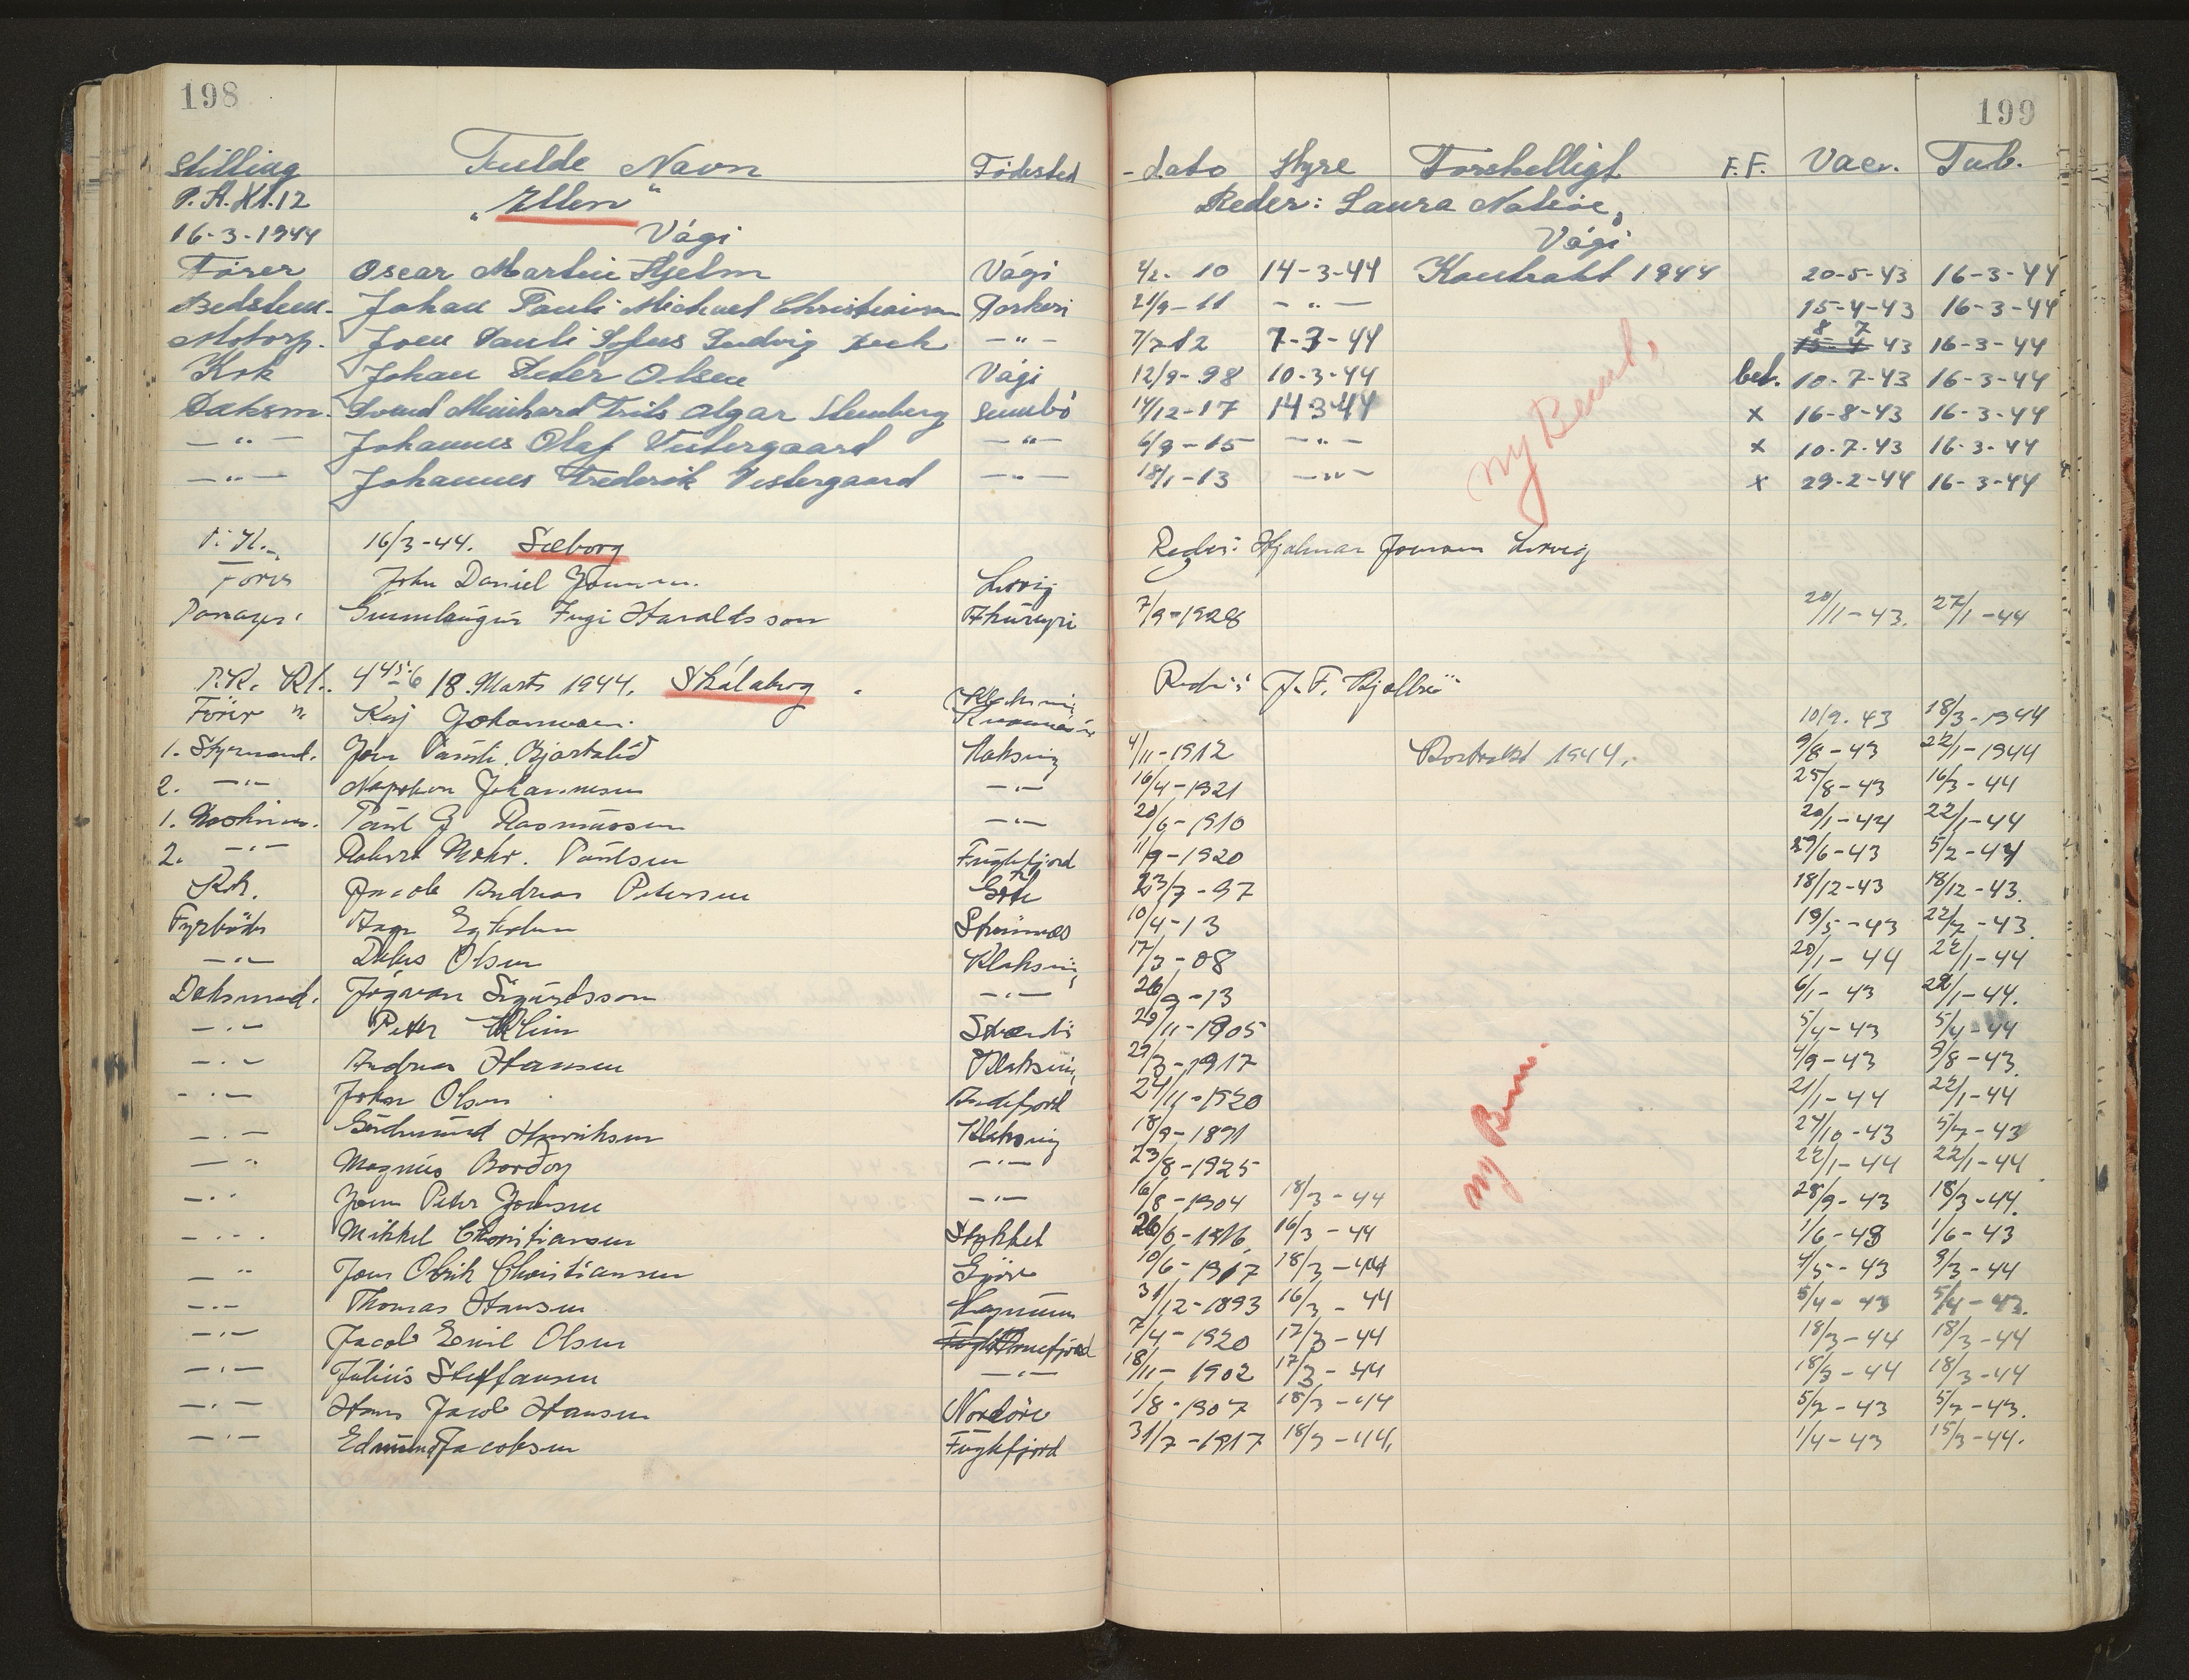 198
199
Stilling Fulde Navn Fødested - dato Hyre Forskelligt F.F. Vacc. Tub.
P.A. Kl. 12 "Ellen" Reder: Laura
16-3-1944 Vági Vági
Fører Oscar Martin Hjelm Vági 2/2- 10 14-3-44 Kontrakt 1944 20-5-43 16-3-44
Bedstem. Johan Pauli Michael Christiansen Porkeri 21/9-11 - " - 15-4-43 16-3-44
Motorp. Joen Pauli Sofus Ludvig - " - 7/7 12 7-3-44 8 7 43 16-3-44
Kok Johan Peter Olsen Vági 12/9-98 10-3-44 bef. 10-7-43 16-3-44
Daksm. Svend Meinhard Frits Algar Stenberg Sumbö 14/12-17 14 3 44 x 16-8-43 16-3-44
- " - Johannes Olaf Vestergaard - " - 6/9-15 - " - x 10-7-43 16-3-44
- " - Johannes Frederik Vestergaard - " - 18/1-13 - " - x 29-2-44 16-3-44
ny Bem.
16/3-44. Søborg Reder: Hjalmar Joensen Lervig
Fører John Daniel Joensen. Lervig
Gunnlaugur Ingi Haraldsson 7/9-1928 20/11-43. 27/1-44
P.K. Kl. 4 45-6 18. Marts 1944. Skálaberg Reder: J.F. Kjølbro
Förer Kaj Johannesen. 10/9-43 18/3-1944
1. Styrmand. Joen Pauli Bjartalid Klaksvig 4/11-1912 Kontrakt 1944. 9/8-43 22/1-1944
2. - " - Napoleon Johannesen - " - 16/4-1921 25/8-43 16/3-44
1. Maskinm. Paul J Rasmussen - " - 20/6-1910 20/1-44 22/1-44
2. - " - Robert Mohr. Poulsen Fuglefjord 11/9-1920 29/6-43 5/2-44
Kok. Jacob Andreas Petersen Göte 23/7-97 18/12-43 18/12-43.
Fyrböder Aage Egholm Strømnæs 10/4-13 19/5-43 22/7-43.
- " - Olsen Klaksvig 17/3-08 20/1-44 22/1-44
Daksmand. Jógvan Sigurdsson - " - 26/9-13 6/1-43 22/1-44.
- " - Peter Klein 29/11-1905 5/4-43 5/4-44
- " - Andreas Hansen Klaksvig 29/3-1917 4/9-43 9/8-43.
- " - Johan Olsen Andefjord 24/11-1920 21/1-44 22/1-44
- " - Gudmund Henriksen Klaksvig 18/9-1891 24/10-43 5/7-43
- " - Magnus Bordoy - " - 23/8-1925 22/1-44 22/1-44
- " - Joen Peter Joensen - " - 16/8-1904 18/3-44 28/9-43 18/3-44.
- " - Mikkel Christiansen Stykket 26/6-1916 16/3-44 1/6-43 1/6-43
- " - Jens Olrik Christiansen Gjóv 10/6-1917 18/3-44 4/5-43 9/3-44
- " - Thomas Hansen 31/12-1893 16/3-44 5/4-43 5/4-43.
- " - Jacob Emil Olsen 7/4-1920 17/3-44 18/3-44 18/3-44
- " - Julius Steffansen - " - 18/11-1902 17/3-44 18/3-44 18/3-44
- " - Hans Jacob Hansen Nordöre 1/8-1907 18/3-44 5/7-43 5/7-43.
- " - Edmund Jacobsen Fuglefjord 31/7-1917 18/3-44, 1/4-43 15/3-44.
ny Bem.